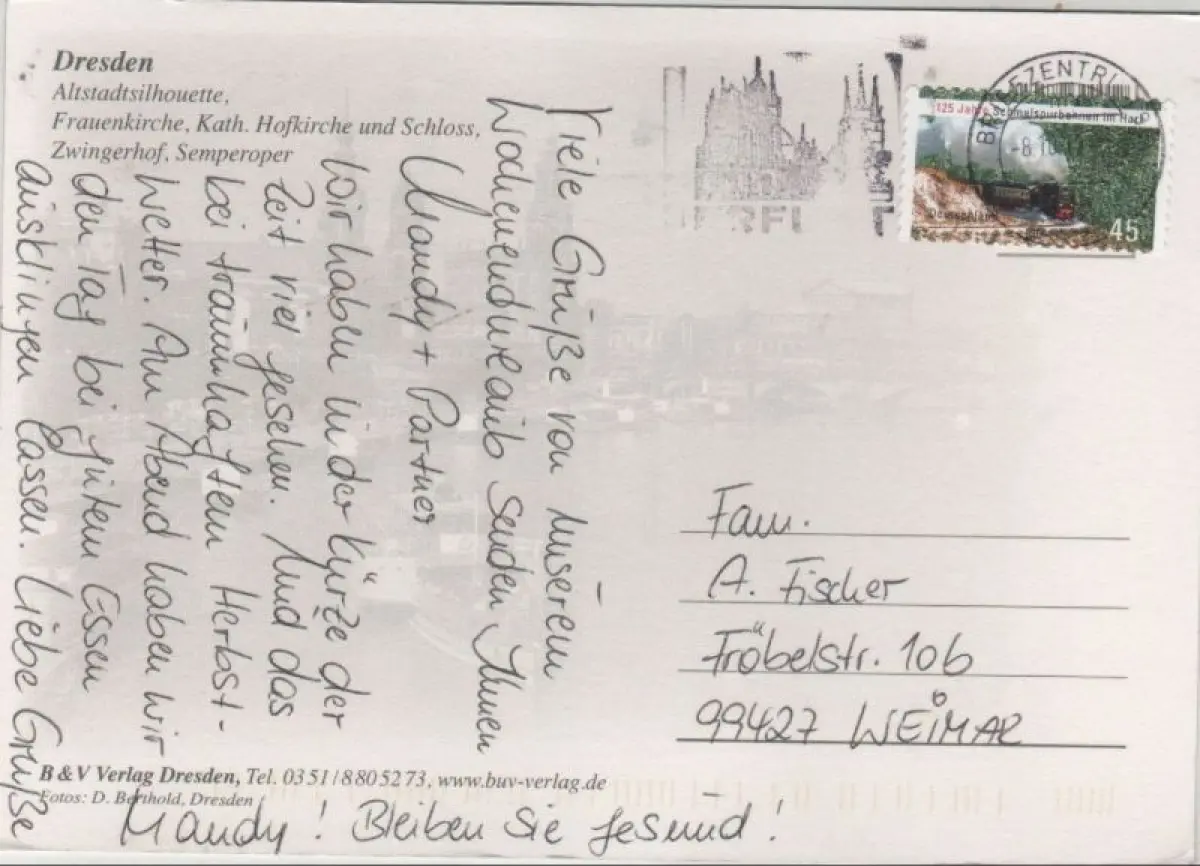 Dresden
Altstadtsilhouette,
Frauenkirche, Kath. Hofkirche und Schloss,
Zwingerhof, Semperoper
Viele Grüße von unserem
Wochenendurlaub senden Ihnen
Mandy + Partner
Wir haben in der Kürze der
Zeit viel gesehen. Und das
bei traumhaftem Herbst-
wetter. Am Abend haben wir
den Tag bei gutem Essen
ausklingen lassen. Liebe Grüße
Mandy! Bleiben Sie gesund!
B & V Verlag Dresden, Tel. 03 51 / 8 80 52 73, www.buv-verlag.de
Fotos: D. Berthold, Dresden
BRIEFZENTRU
-8.10
125 Jahre Schmalspurbahnen im Harz
Deutschland
45
Fam.
A. Fischer
Fröbelstr. 10b
99427 WEiMAR